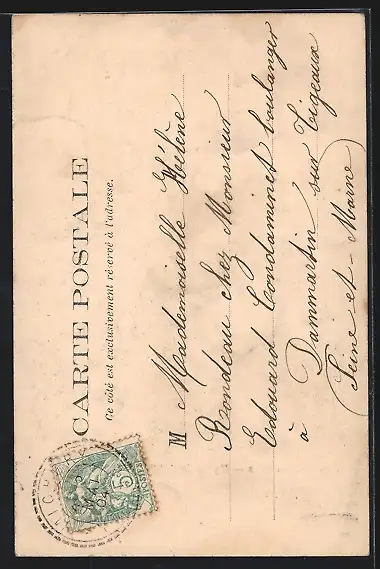 CARTE POSTALE
Ce côté est exclusivement réservé à l'adresse.
M Mademoiselle Hélène
Rondeau chez Monsieur
Edouard Condaminet boulanger
à Dammartin sur Tigeaux
(Seine et Marne)